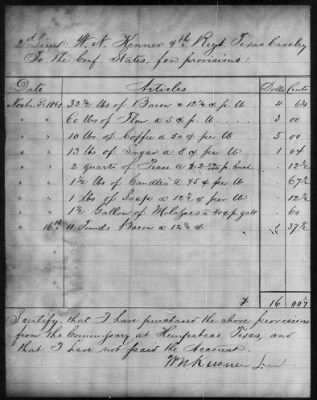 2d Lieut W. N. Kenner 4th Regt Texas Cavalry
To the Conf States, for provisions:
Date Articles Dolls Cents
Novbr 5 1861 32½ lbs of Bacon a 12½ ¢ p lb 4
" " 60 lbs of Flour a 5 ¢ p lb 3 00
" " 10 lbs of Coffee a 50 ¢ per lb 5 00
" " 13 lbs of Sugar a 8 ¢ p lb 1 04
" " 2 quarts of Peas a 12½
" " 1½ lbs of Candles a 45 ¢ per lb 67½
" " 1 lbs of Soap a 12½ ¢ per lb 12½
" " 1½ Gallon of Molasses a 40 ¢ p gall 60
" 16th 11 Pounds Bacon a 12½ ¢ 1 37½
$ 16 00½
I certify, that I have purchased the above provisions
from the Commissary at Hempstead Texas, and
that I have not paid the Account.
W N Kenner Lieut